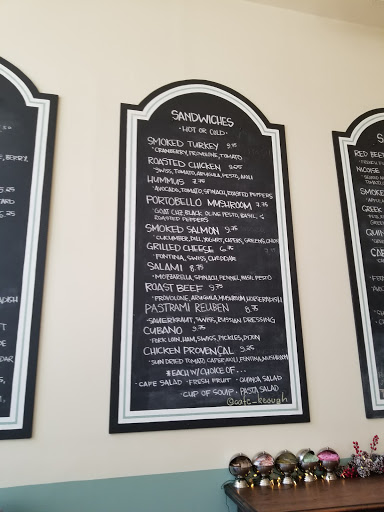 SANDWICHES
· HOT OR COLD ·
SMOKED TURKEY 9.75
· CRANBERRY, PROVOLONE, TOMATO
ROASTED CHICKEN 9.25
· SWISS, TOMATO, ARUGULA, PESTO, AIOLI
HUMMUS 7.75
· AVOCADO, TOMATO, SPINACH, ROASTED PEPPERS
PORTOBELLO MUSHROOM 9.75
· GOAT CHZ, BLACK OLIVE PESTO, BASIL, &
ROASTED PEPPERS
SMOKED SALMON 9.75
· CUCUMBER, DILL, YOGURT, CAPERS, GREENS, ONION
GRILLED CHEESE 6.75
· FONTINA, SWISS, CHEDDAR
SALAMI 8.75
· MOZZARELLA, SPINACH, FENNEL, BASIL PESTO
ROAST BEEF 9.75
· PROVOLONE, ARUGULA, MUSHROOM, HORSERADISH
PASTRAMI REUBEN 8.75
· SAUERKRAUT, SWISS, RUSSIAN DRESSING
CUBANO 9.75
· PORK LOIN, HAM, SWISS, PICKLES, DIJON
CHICKEN PROVENÇAL 9.25
· SUN DRIED TOMATO, CAPER AIOLI, FONTINA, MUSHROOM
*EACH W/ CHOICE OF...
· CAFE SALAD · FRESH FRUIT · QUINOA SALAD
· CUP OF SOUP · PASTA SALAD
@cafe_keough
BERRY,
RED BEE
NICOISE
SMOKE
GREEK
QUIN